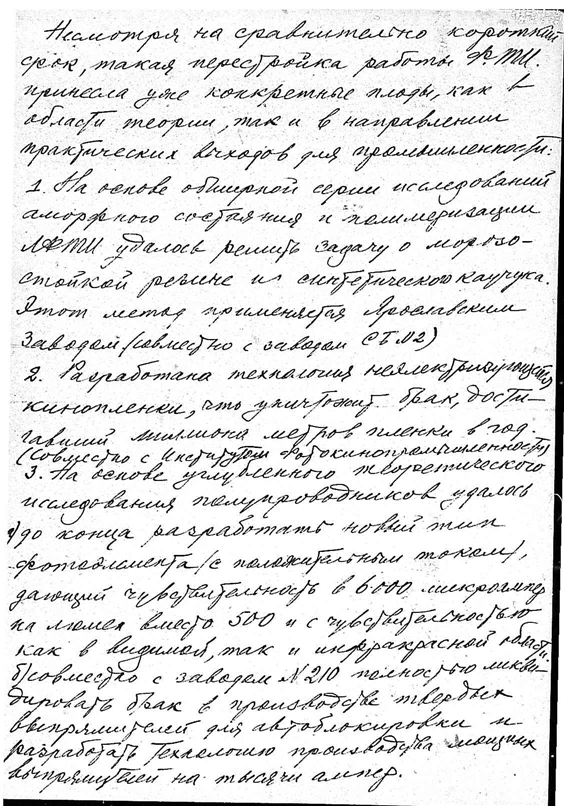 Несмотря на сравнительно короткий
срок, такая перестройка работы Ф.ТИ.
принесла уже конкретные плоды, как в
области теории, так и в направлении
практических выходов для промышленности:
1. На основе обширной серии исследований
аморфного состояния и полимеризации
ЛФТИ удалось решить задачу о морозо-
стойкой резине из синтетического каучука.
Этот метод применяется Ярославским
Заводом (совместно с заводом СК №2)
2. Разработана технология неэлектризующейся
кинопленки, что уничтожит брак, дости-
гавший миллиона метров пленки в год.
(Совместно с Институтом Фотокинопромышленности)
3. На основе углубленного теоретического
исследования полупроводников удалось
а) до конца разработать новый тип
фотоэлемента (с положительным током),
дающий чувствительность в 6000 микроампер
на люмен вместо 500 и с чувствительностью
как в видимой, так и инфракрасной области.
б) совместно с заводом N 210 полностью ликви-
дировать брак в производстве твердых
выпрямителей для автоблокировки и
разработать технологию производства мощных
выпрямителей на тысячи ампер.